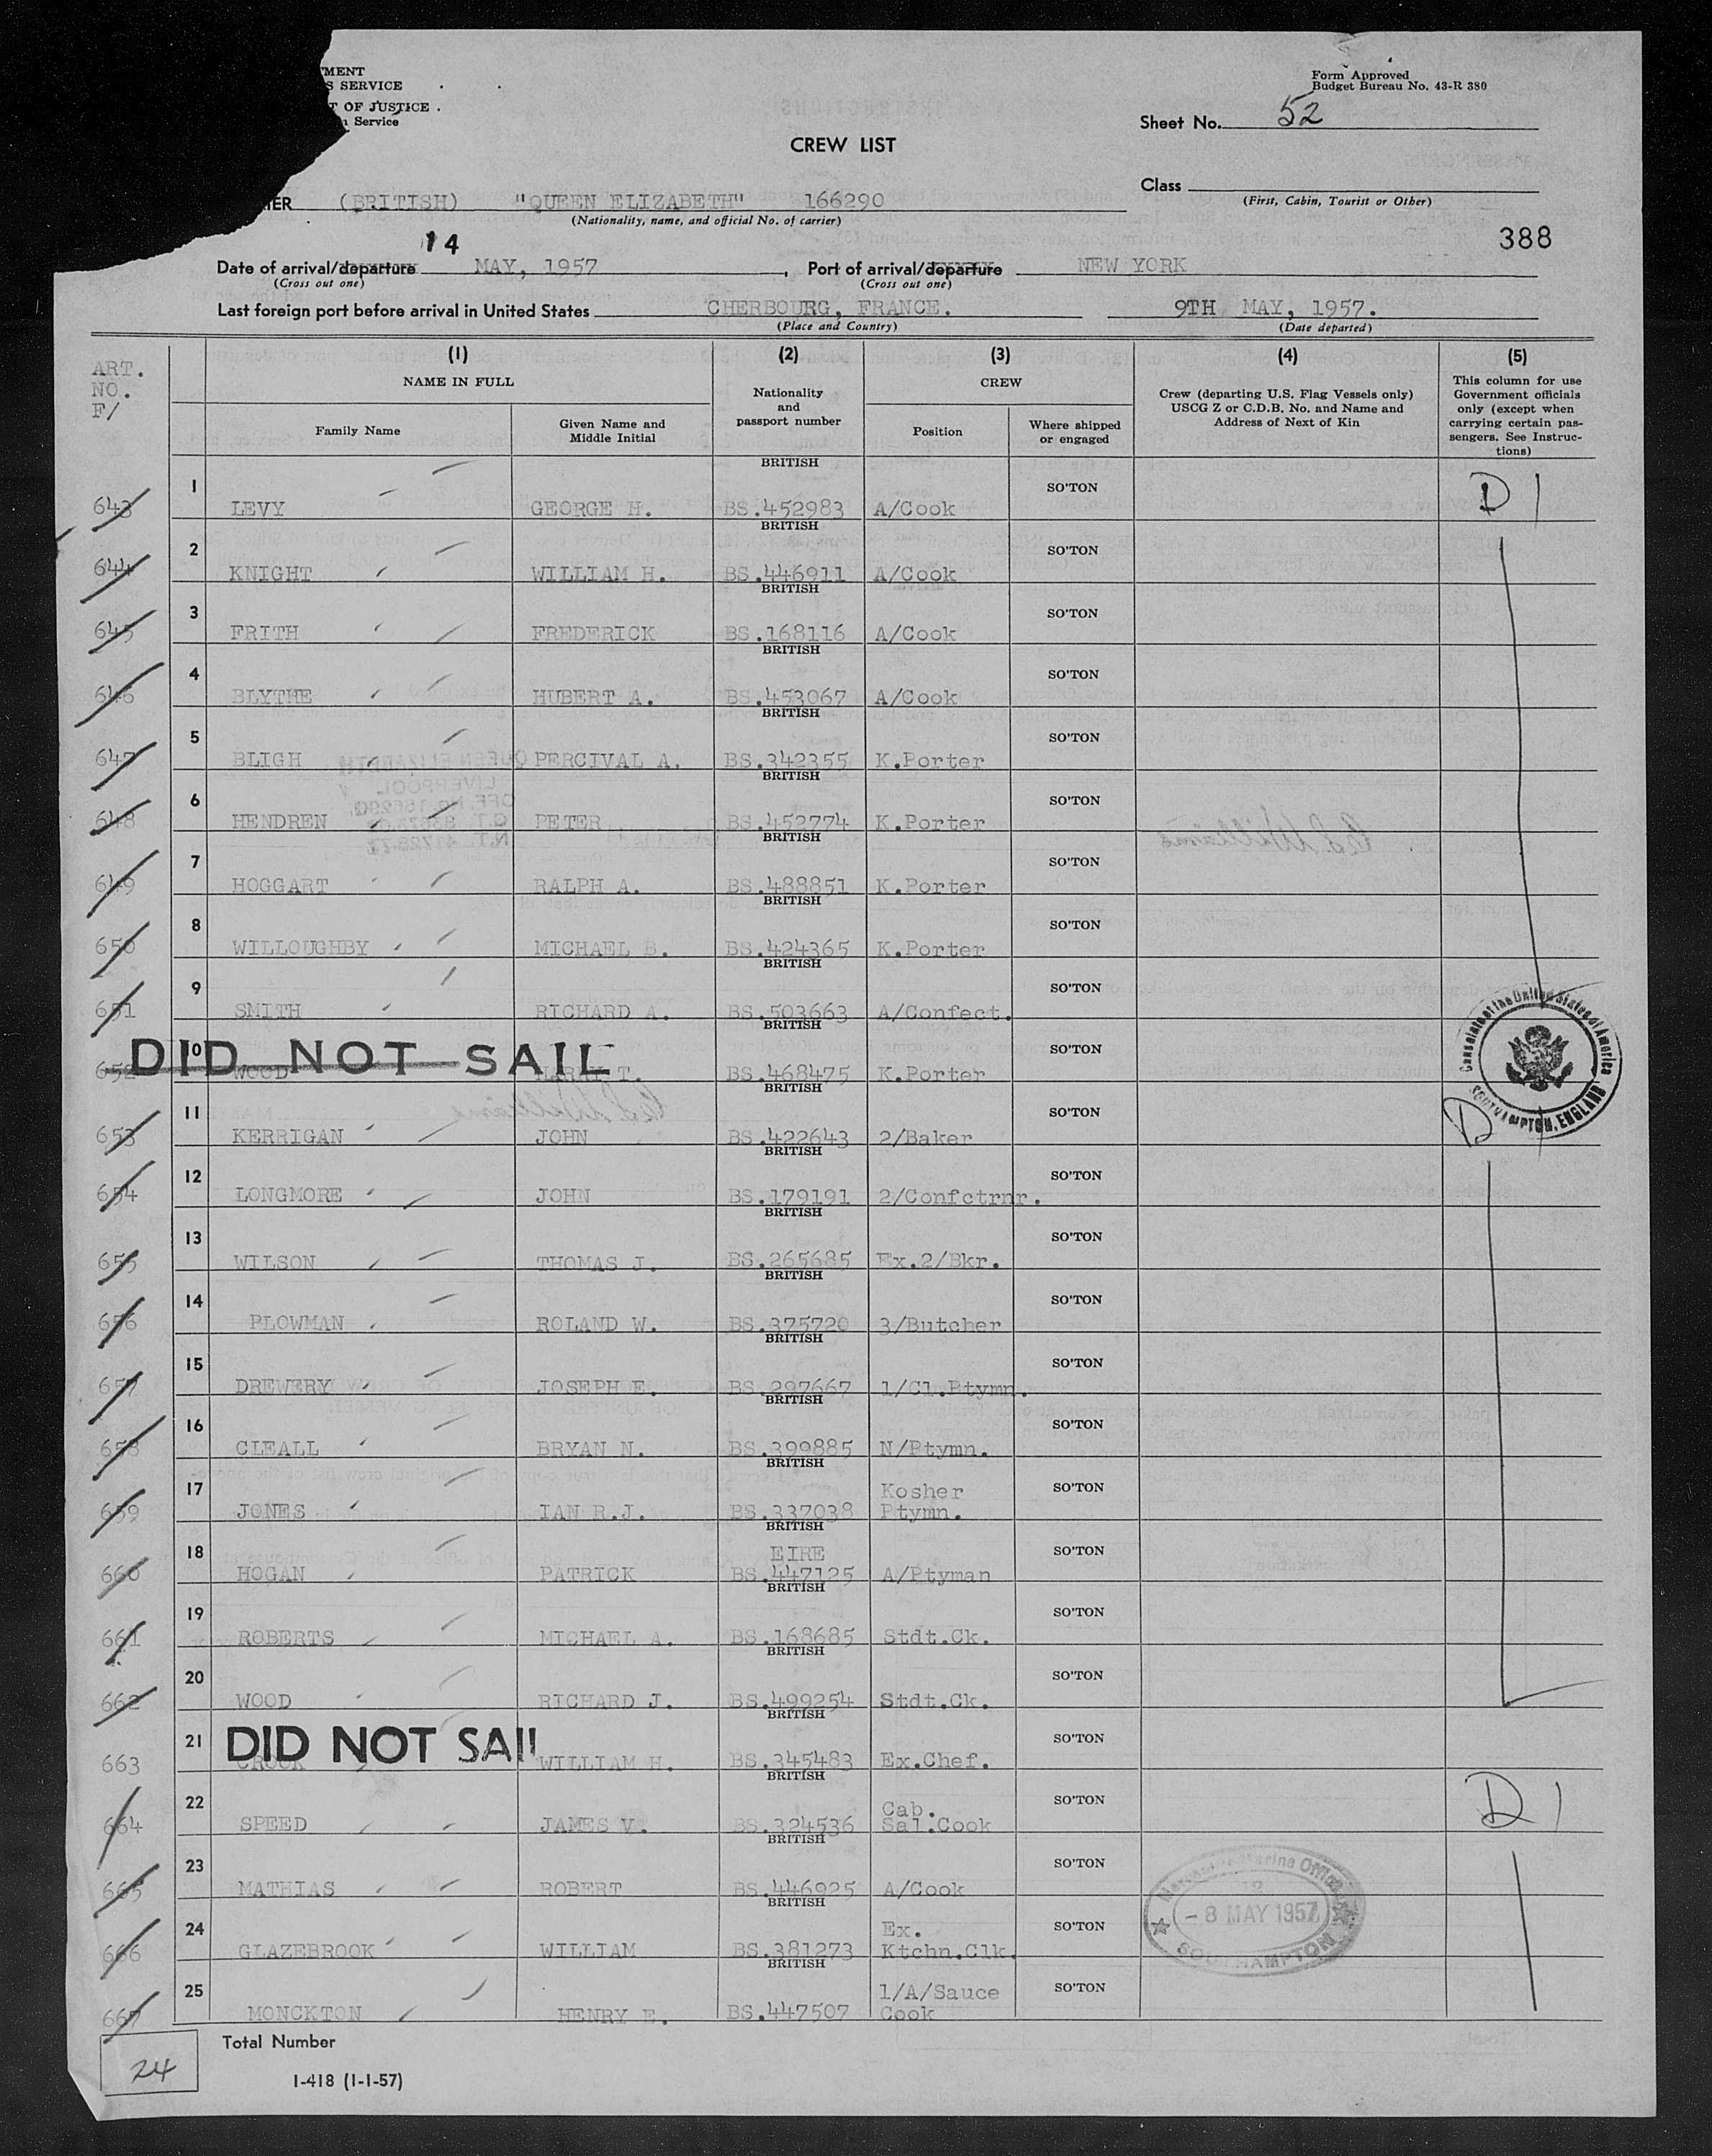 MENT
S SERVICE
T OF JUSTICE .
n Service
Form Approved
Budget Bureau No. 43-R 380
Sheet No. 52
CREW LIST
Class
(First, Cabin, Tourist or Other)
IER (BRITISH) "QUEEN ELIZABETH" 166290
(Nationality, name, and official No. of carrier)
388
14
Date of arrival/departure MAY, 1957 , Port of arrival/departure NEW YORK
(Cross out one) (Cross out one)
Last foreign port before arrival in United States CHERBOURG, FRANCE. 9TH MAY, 1957.
(Place and Country) (Date departed)
ART.
NO.
F/
(1) (2) (3) (4) (5)
NAME IN FULL
Family Name
Given Name and
Middle Initial
Nationality
and
passport number
CREW
Position
Where shipped
or engaged
Crew (departing U.S. Flag Vessels only)
USCG Z or C.D.B. No. and Name and
Address of Next of Kin
This column for use
Government officials
only (except when
carrying certain pas-
sengers. See Instruc-
tions)
BRITISH
643 1 LEVY GEORGE H. BS.452983 A/Cook SO'TON D 1
BRITISH
644 2 KNIGHT WILLIAM H. BS.446911 A/Cook SO'TON
BRITISH
645 3 FRITH FREDERICK BS.168116 A/Cook SO'TON
BRITISH
646 4 BLYTHE HUBERT A. BS.453067 A/Cook SO'TON
BRITISH
647 5 BLIGH PERCIVAL A. BS.342355 K.Porter SO'TON
BRITISH
648 6 HENDREN PETER BS.452774 K.Porter SO'TON
BRITISH
649 7 HOGGART RALPH A. BS.488851 K.Porter SO'TON
BRITISH
650 8 WILLOUGHBY MICHAEL B. BS.424365 K.Porter SO'TON
BRITISH
651 9 SMITH RICHARD A. BS.503663 A/Confect. SO'TON
BRITISH
DID NOT SAIL
652 10 WOOD T. BS.468475 K.Porter SO'TON
Consulate of the United States of America
SOUTHAMPTON, ENGLAND
BRITISH
653 11 KERRIGAN JOHN BS.422643 2/Baker SO'TON D
BRITISH
654 12 LONGMORE JOHN BS.179191 2/Confctrnr. SO'TON
BRITISH
655 13 WILSON THOMAS J. BS.265685 Ex.2/Bkr. SO'TON
BRITISH
656 14 PLOWMAN ROLAND W. BS.375720 3/Butcher SO'TON
BRITISH
657 15 DREWERY JOSEPH E. BS.297667 1/Cl.Ptymn. SO'TON
BRITISH
658 16 CLEALL BRYAN N. BS.399885 N/Ptymn. SO'TON
BRITISH
Kosher
659 17 JONES IAN R.J. BS.337038 Ptymn. SO'TON
BRITISH
EIRE
660 18 HOGAN PATRICK BS.447125 A/Ptyman SO'TON
BRITISH
661 19 ROBERTS MICHAEL A. BS.168685 Stdt.Ck. SO'TON
BRITISH
662 20 WOOD RICHARD J. BS.499254 Stdt.Ck. SO'TON
BRITISH
DID NOT SAIL
663 21 CROOK WILLIAM H. BS.345483 Ex.Chef. SO'TON
BRITISH
Cab.
664 22 SPEED JAMES V. BS.324536 Sal.Cook SO'TON D 1
BRITISH
665 23 MATHIAS ROBERT BS.446925 A/Cook SO'TON
Marine Office
- 8 MAY 1957
SOUTHAMPTON
BRITISH
Ex.
666 24 GLAZEBROOK WILLIAM BS.381273 Ktchn.Clk. SO'TON
BRITISH
1/A/Sauce
667 25 MONCKTON HENRY E. BS.447507 Cook SO'TON
24
Total Number
I-418 (1-1-57)